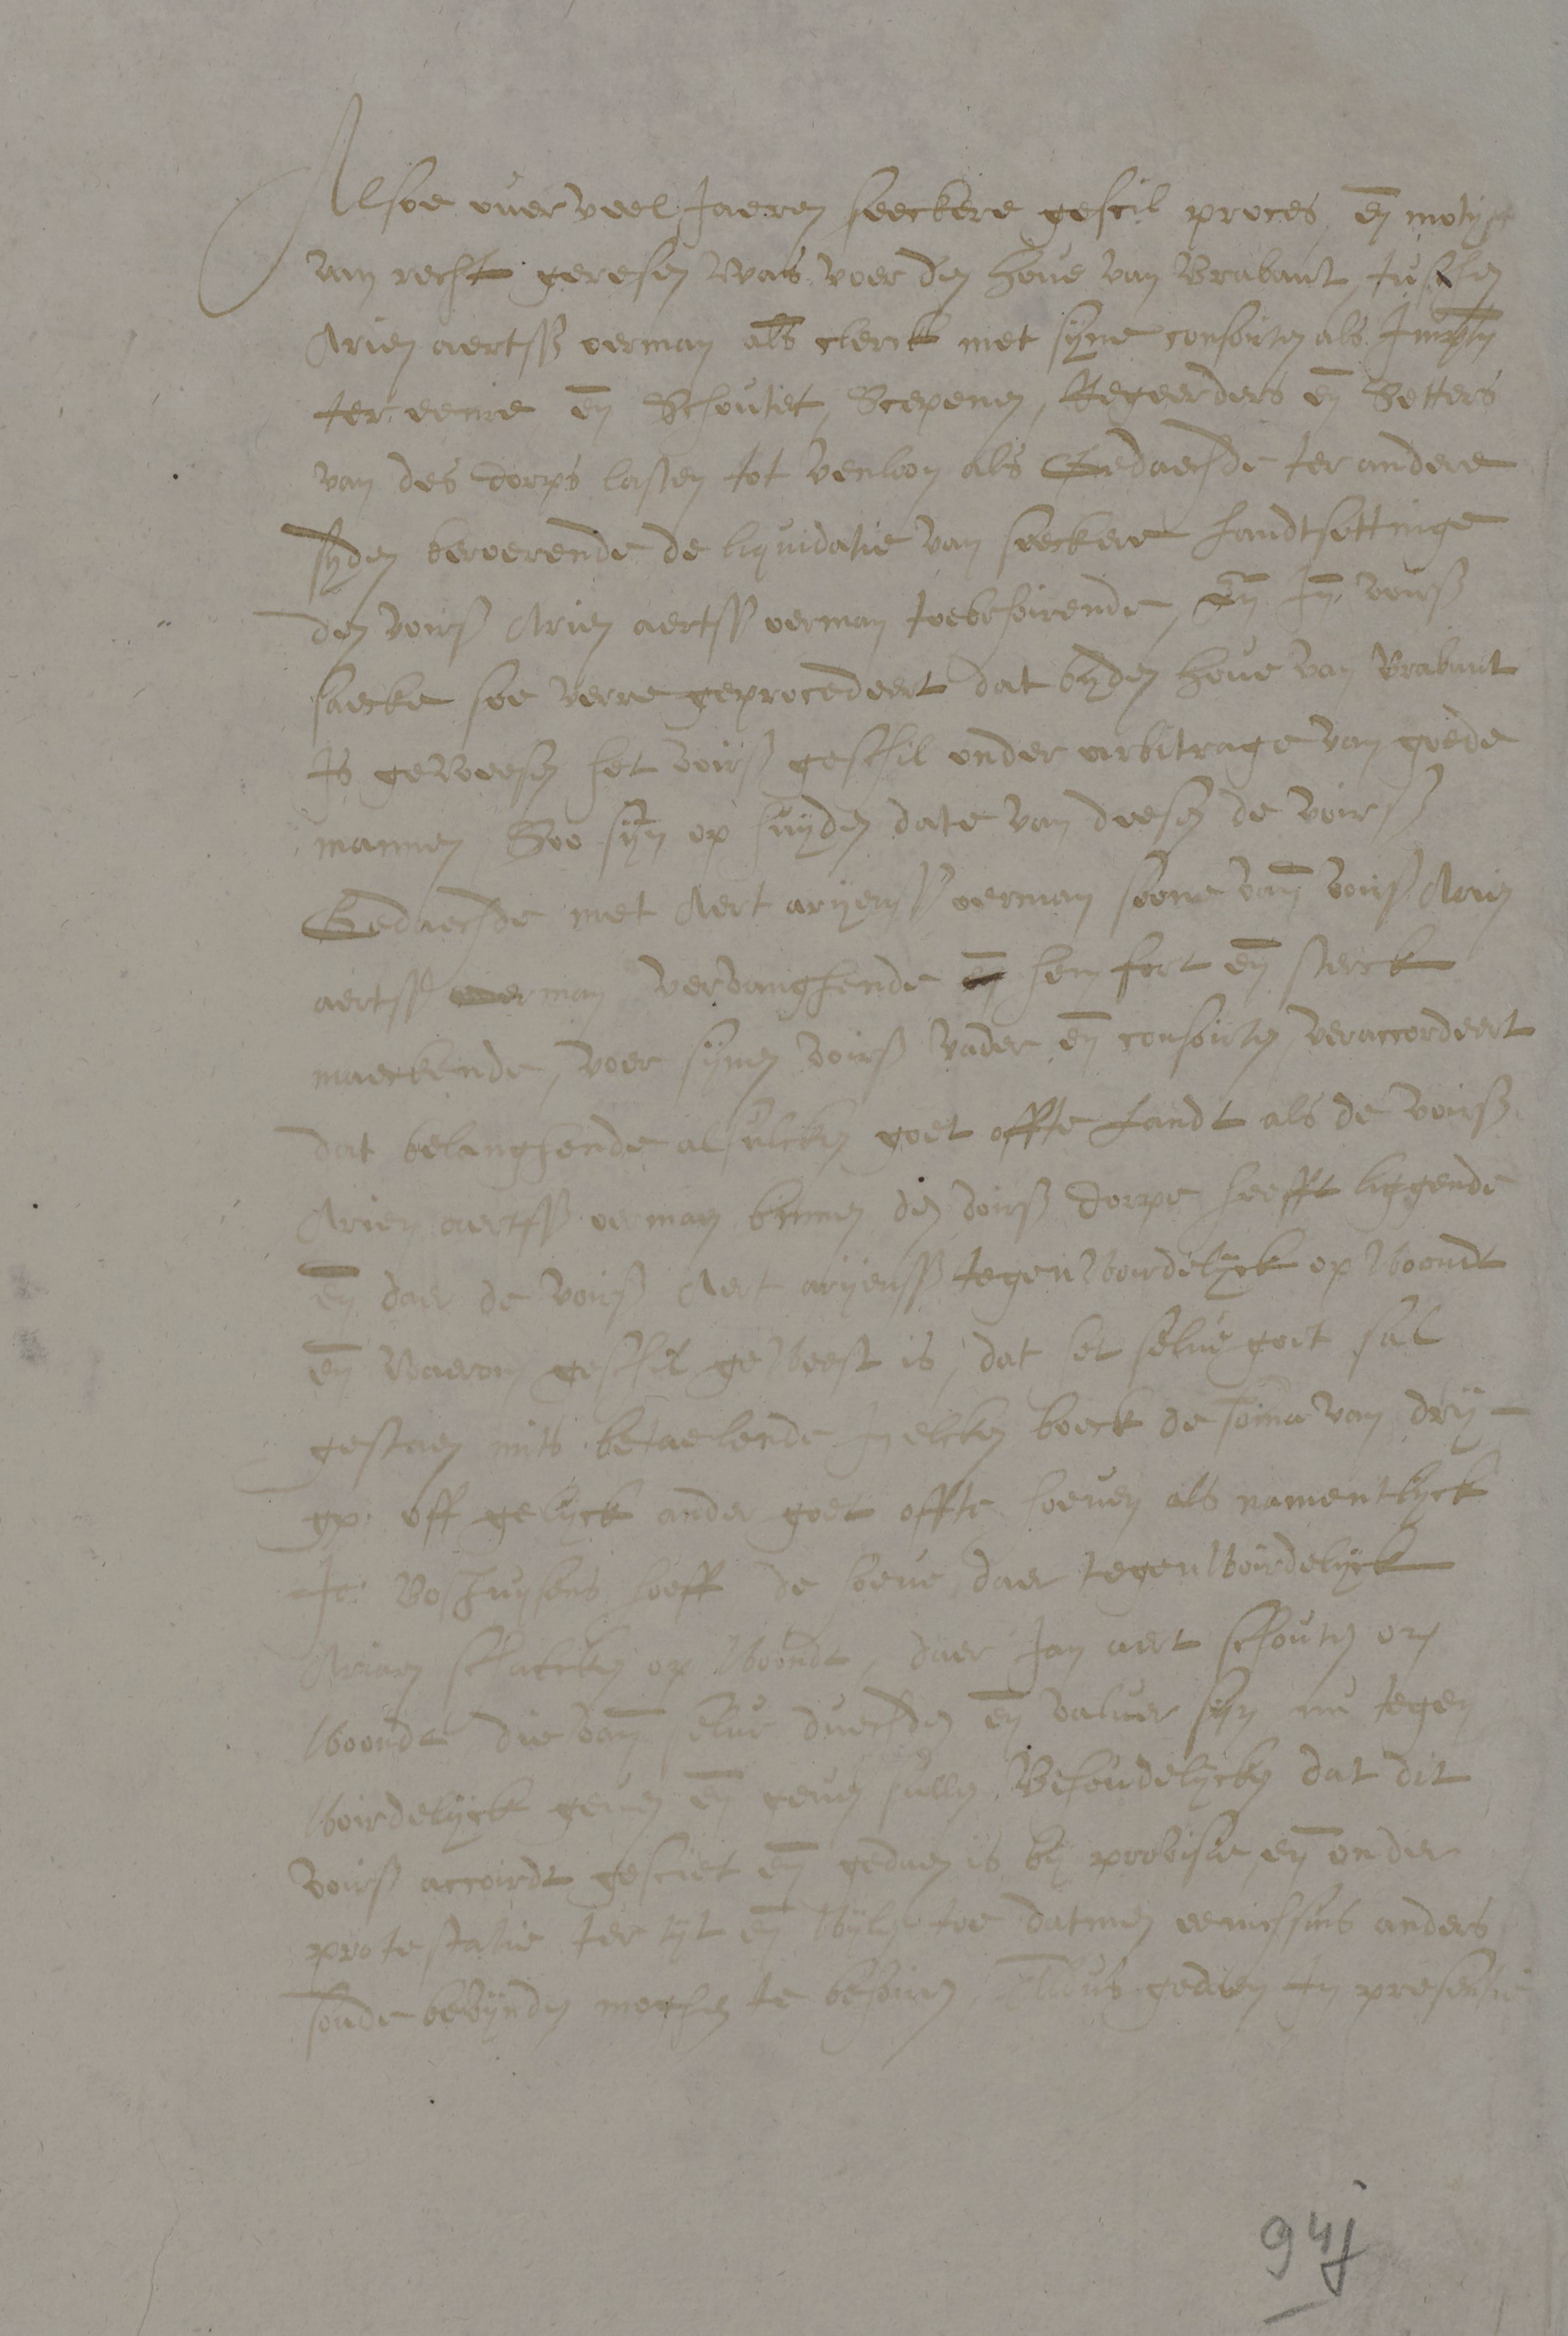 Alsoe over veel Jaeren seeckere gescil proces, en̄ motyf
van recht geresen was voer den hove van Brabant, tusschen
Arien aertss oerman als clerck met syne consoirten als Imp̄tn
ter eenre en̄ Schoutet, Scepenen, Regeerders en̄ Setters
van des dorps lasten tot venloon als Gedaechde ter andere
syden beroerende de liquidatie van seeckere Landtsettinge
den voirs Arien aertss oerman toebehoirende, En̄ In̄ voirs
saecke soe verre geprocedeert dat byden hove van Brabant
Is geweesen het voirs geschil onder arbitrage van goede
mannen, Soo syn op huyden date van deesen de voirs
Gedaechde met Aert aryenss oerman soone van̄ voirs Arien
aertss oerman vervanghende hem fort en̄ sterck
maeckende, voer synen voirs vader en̄ consoirten, veraccordeert
dat belanghende alsulcken goet offte Landt als de voirs
Arien aertss oerman binnen den voirs dorpe heefft liggende
en̄ daer de voirs Aert aryenss tegenwoirdelyck op woondt
en̄ waerom geschil geweest is, dat het selve goet sal
gestaen mits betaelende In elcken boeck de som̄a van dry
gp. off gelyck ander goet offte hoeven als namentlyck
Jo. Boshuysens hoeff de hoeve daer tegenwoirdelyck
Ariaen schalcken op woondt, daer Jan aert schouten op
woondt die van̄ selve duechden en̄ valuer syn nu tegen
woirdelyck geven en̄ geven sullen, Behoudelycken dat dit
voirs accoirdt gesciet en̄ gedaen is by provisie, en̄ onder
protestatie ter tyt en̄ wylen toe datmen eenichsins anders
soude bevynden mogen te behoiren, Aldus gedaen In presentie
94j